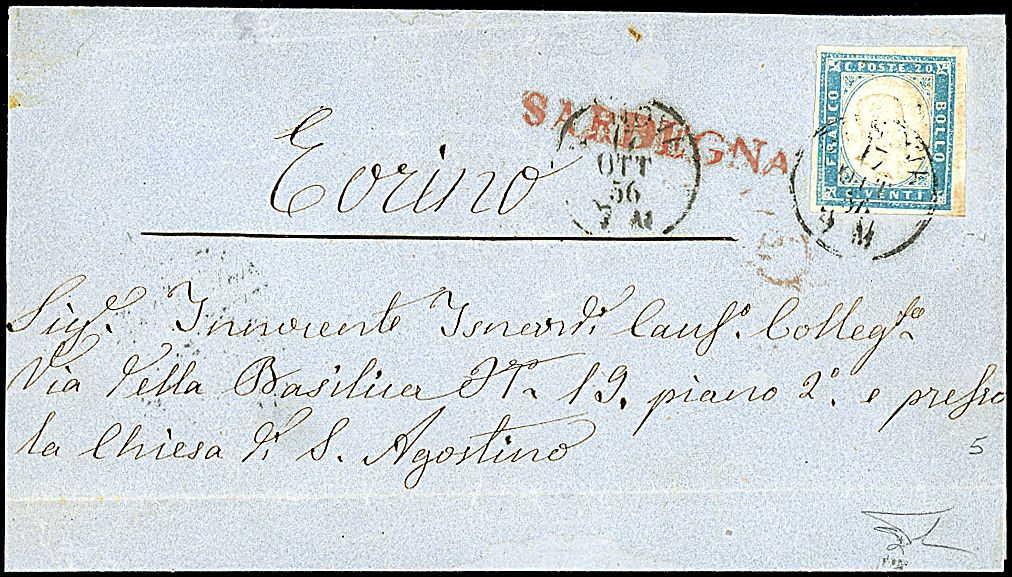 C. POSTE. 20.
FRANCO
BOLLO
C. VENTI
SARDEGNA
OTT
56
7 M
17
OTT
56
M
Torino
Sig.r Innocente Isnardi Caus.o Colleg.to
Via della Basilica N.o 19. piano 2.o e presso
la Chiesa di S. Agostino
5